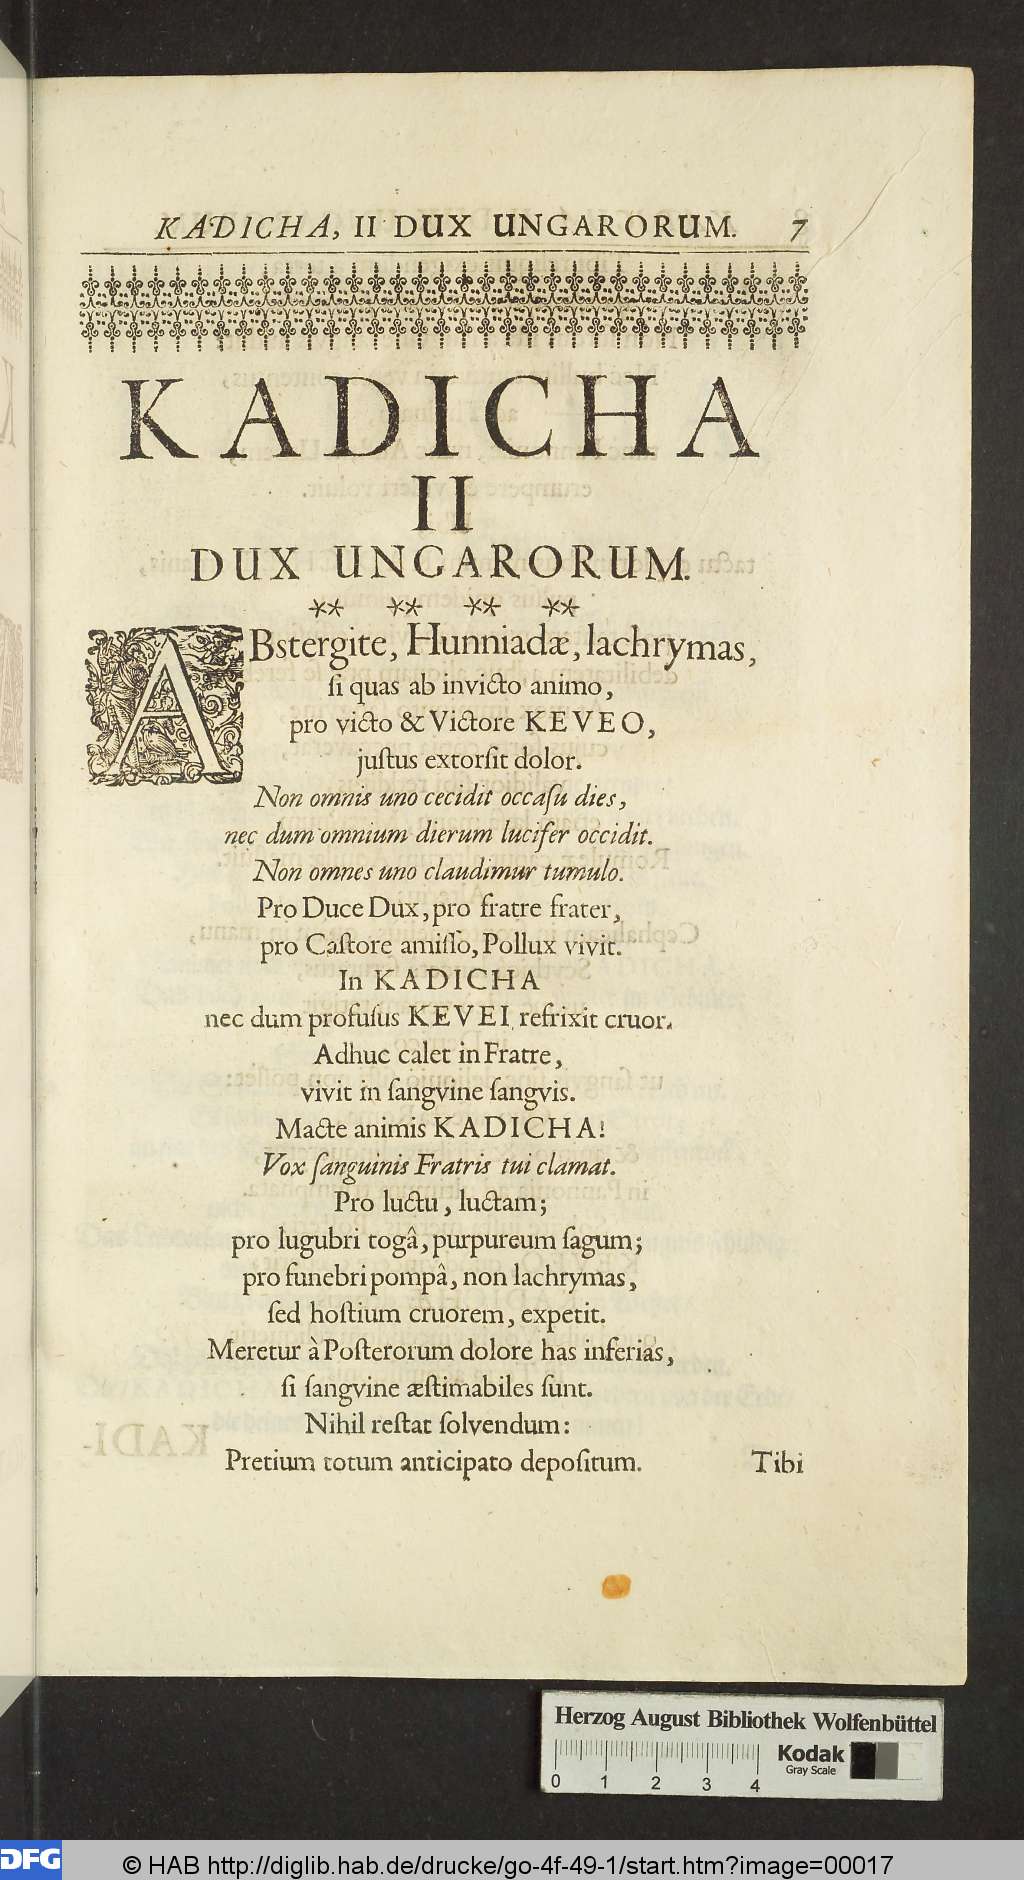 KADICHA, II DUX UNGARORUM. 7
KADICHA
II
DUX UNGARORUM.
** ** ** **
ABstergite, Hunniadæ, lachrymas,
ſi quas ab invicto animo,
pro victo & Victore KEVEO,
juſtus extorſit dolor.
Non omnis uno cecidit occaſu dies,
nec dum omnium dierum lucifer occidit.
Non omnes uno claudimur tumulo.
Pro Duce Dux, pro fratre frater,
pro Caſtore amiſſo, Pollux vivit.
In KADICHA
nec dum profuſus KEVEI refrixit cruor.
Adhuc calet in Fratre,
vivit in ſangvine ſangvis.
Macte animis KADICHA!
Vox ſanguinis Fratris tui clamat.
Pro luctu, luctam;
pro lugubri togâ, purpureum ſagum;
pro funebri pompâ, non lachrymas,
ſed hoſtium cruorem, expetit.
Meretur à Poſterorum dolore has inferias,
ſi ſangvine æſtimabiles ſunt.
Nihil reſtat ſolvendum:
Pretium totum anticipato depoſitum.
Tibi
Herzog August Bibliothek Wolfenbüttel
Kodak
Gray Scale
0 1 2 3 4
DFG
© HAB http://diglib.hab.de/drucke/go-4f-49-1/start.htm?image=00017